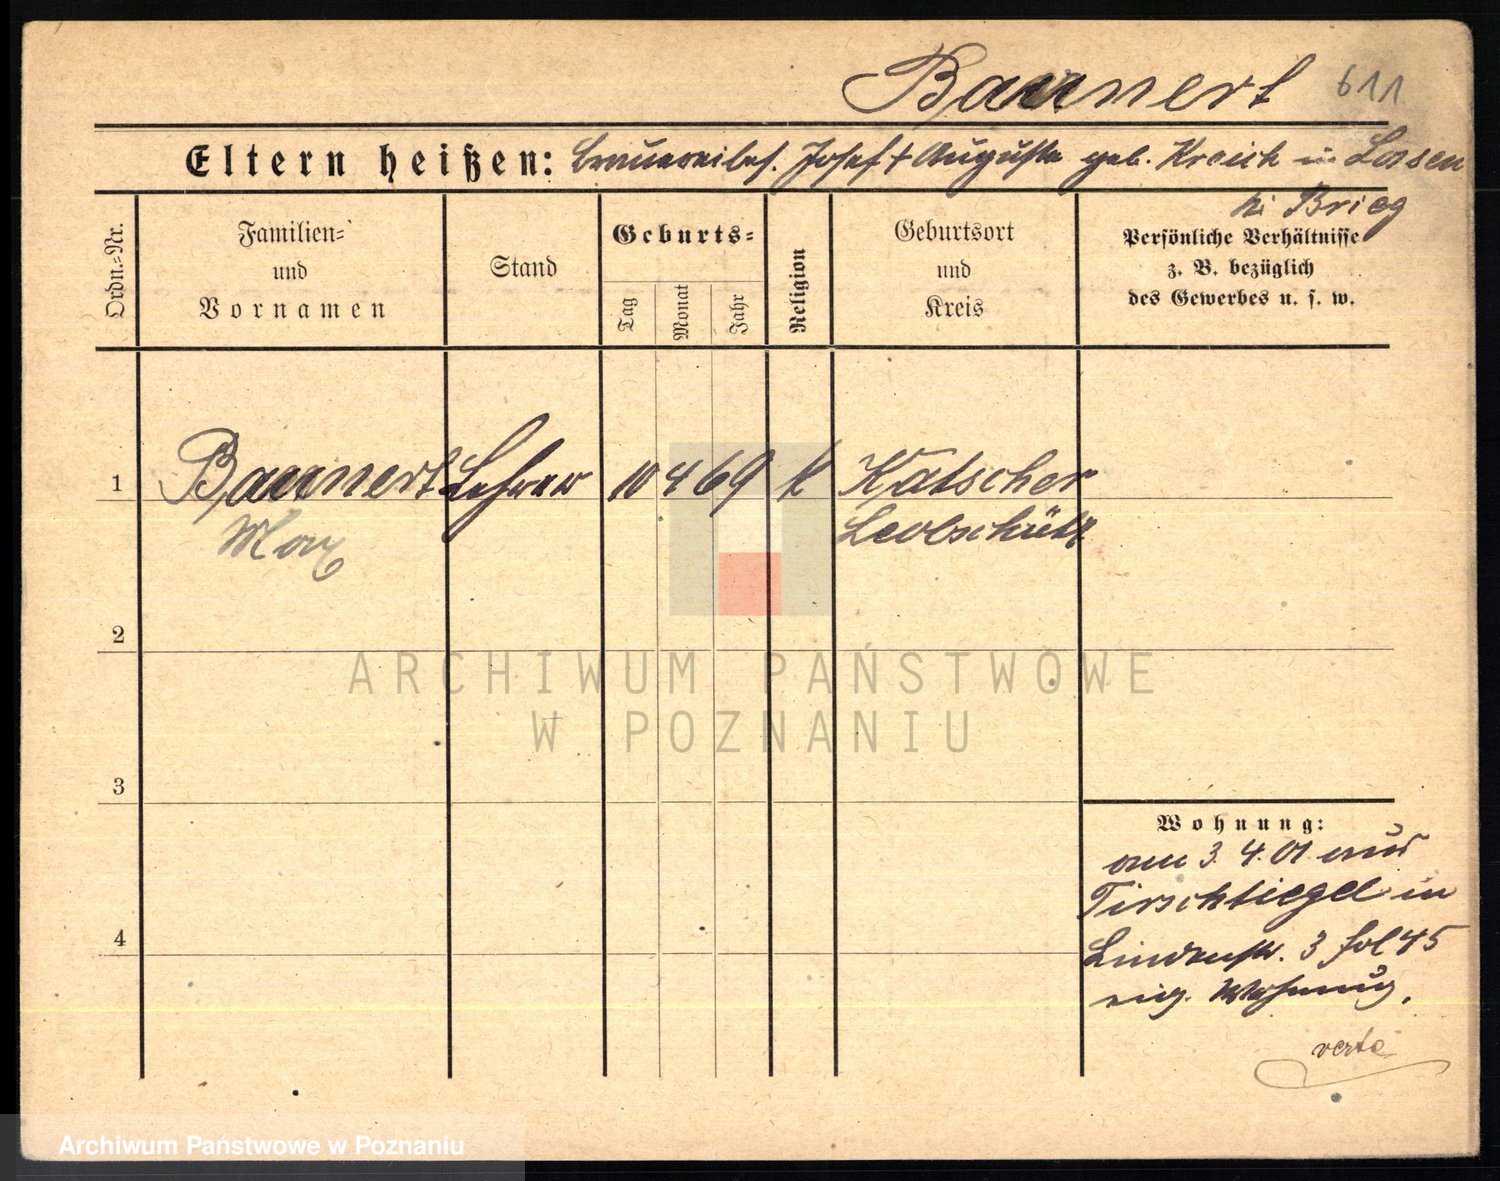 Baunert 611
Eltern heißen: Brauereibes. Josef + Auguste geb. in Lossen
bei Brieg
Ordn.-Nr.
Familien-
und
Vornamen
Stand
Geburts-
Tag
Monat
Jahr
Religion
Geburtsort
und
Kreis
Persönliche Verhältnisse
z. B. bezüglich
des Gewerbes u. s. w.
1 Baunert Lehrer 10 4 69 k Katscher
Max Leobschütz
2
ARCHIWUM PAŃSTWOWE
W POZNANIU
3
Wohnung:
am 3. 4. 01 aus
Tirschtiegel in
4
Lindenstr. 3 fol 45
eig. Wohnung.
verte
Archiwum Państwowe w Poznaniu